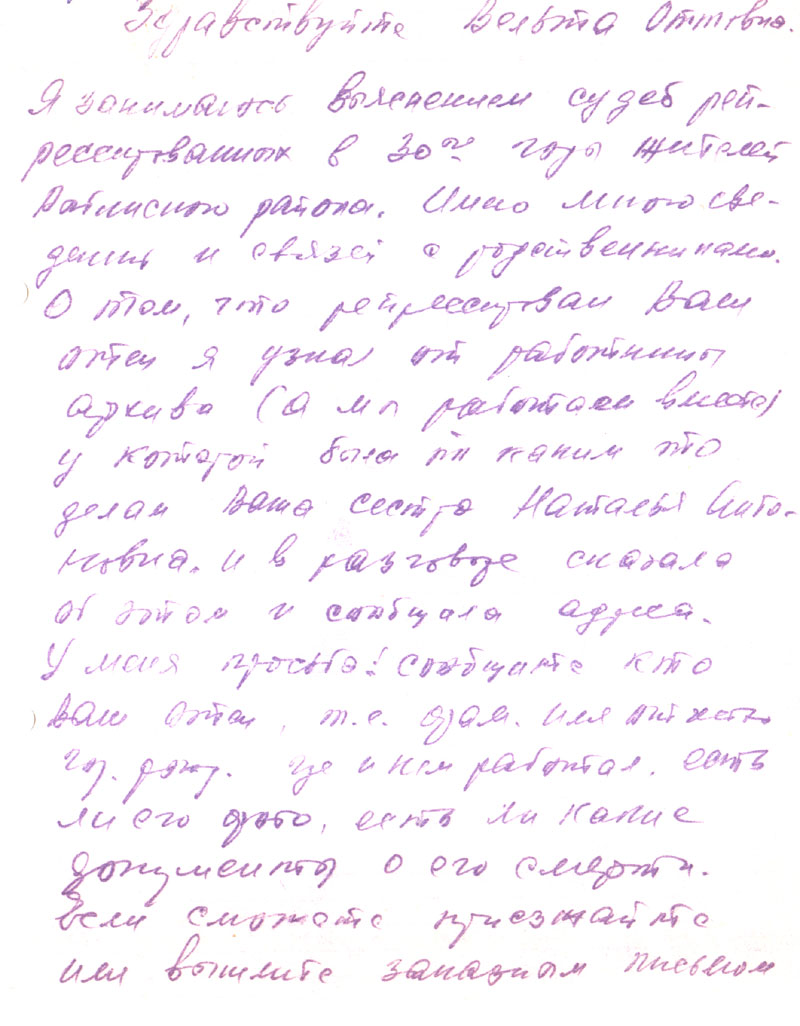 Здравствуйте Вельта Оттовна.
Я занимаюсь выяснением судеб реп-
рессированных в 30ые годы жителей
района. Имею много све-
дений и связей с родственниками.
О том, что репрессирован Ваш
отец я узнал от работницы
архива (а мы работаем вместе)
у которой была по каким то
делам Ваша сестра Наталья Анто-
новна. и в разговоре сказала
об этом и сообщила адреса.
У меня просьба! сообщите кто
Ваш отец, т.е. фам. имя отчество
год. рожд. где и кем работал. есть
ли его фото, есть ли какие
документы о его смерти.
Если сможете приезжайте
или вышлите заказным письмом